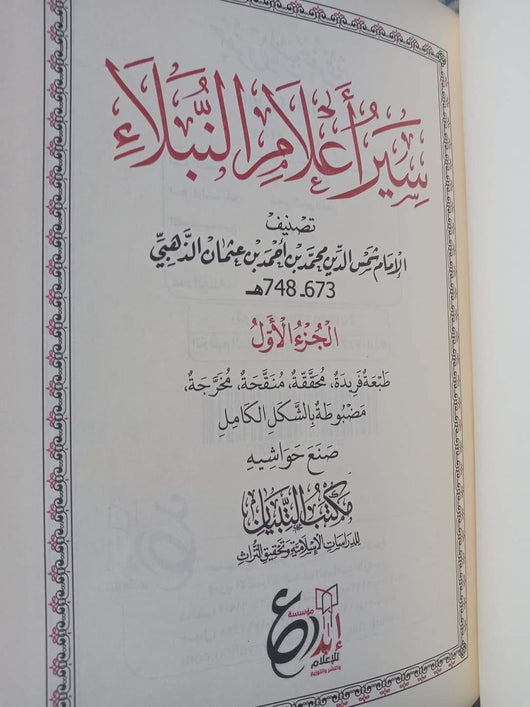 سِيَرُ أَعْلَامِ النُّبَلَاءِ
تصنيف
الإمام شمس الدين محمد بن أحمد بن عثمان الذهبي
673ـ 748هـ
الجُزْءُ الأَوَّلُ
طَبْعَةٌ فَرِيدَةٌ، مُحَقَّقَةٌ، مُنَقَّحَةٌ، مُخَرَّجَةٌ،
مَضْبُوطَةٌ بِالشَّكَلِ الكَامِلِ
صَنَعَ حَوَاشِيهِ
مكتب التبيان
للدراسات الإسلامية وتحقيق التراث
مؤسسة
إبداع
للإعلام
والنشر والتوزيع